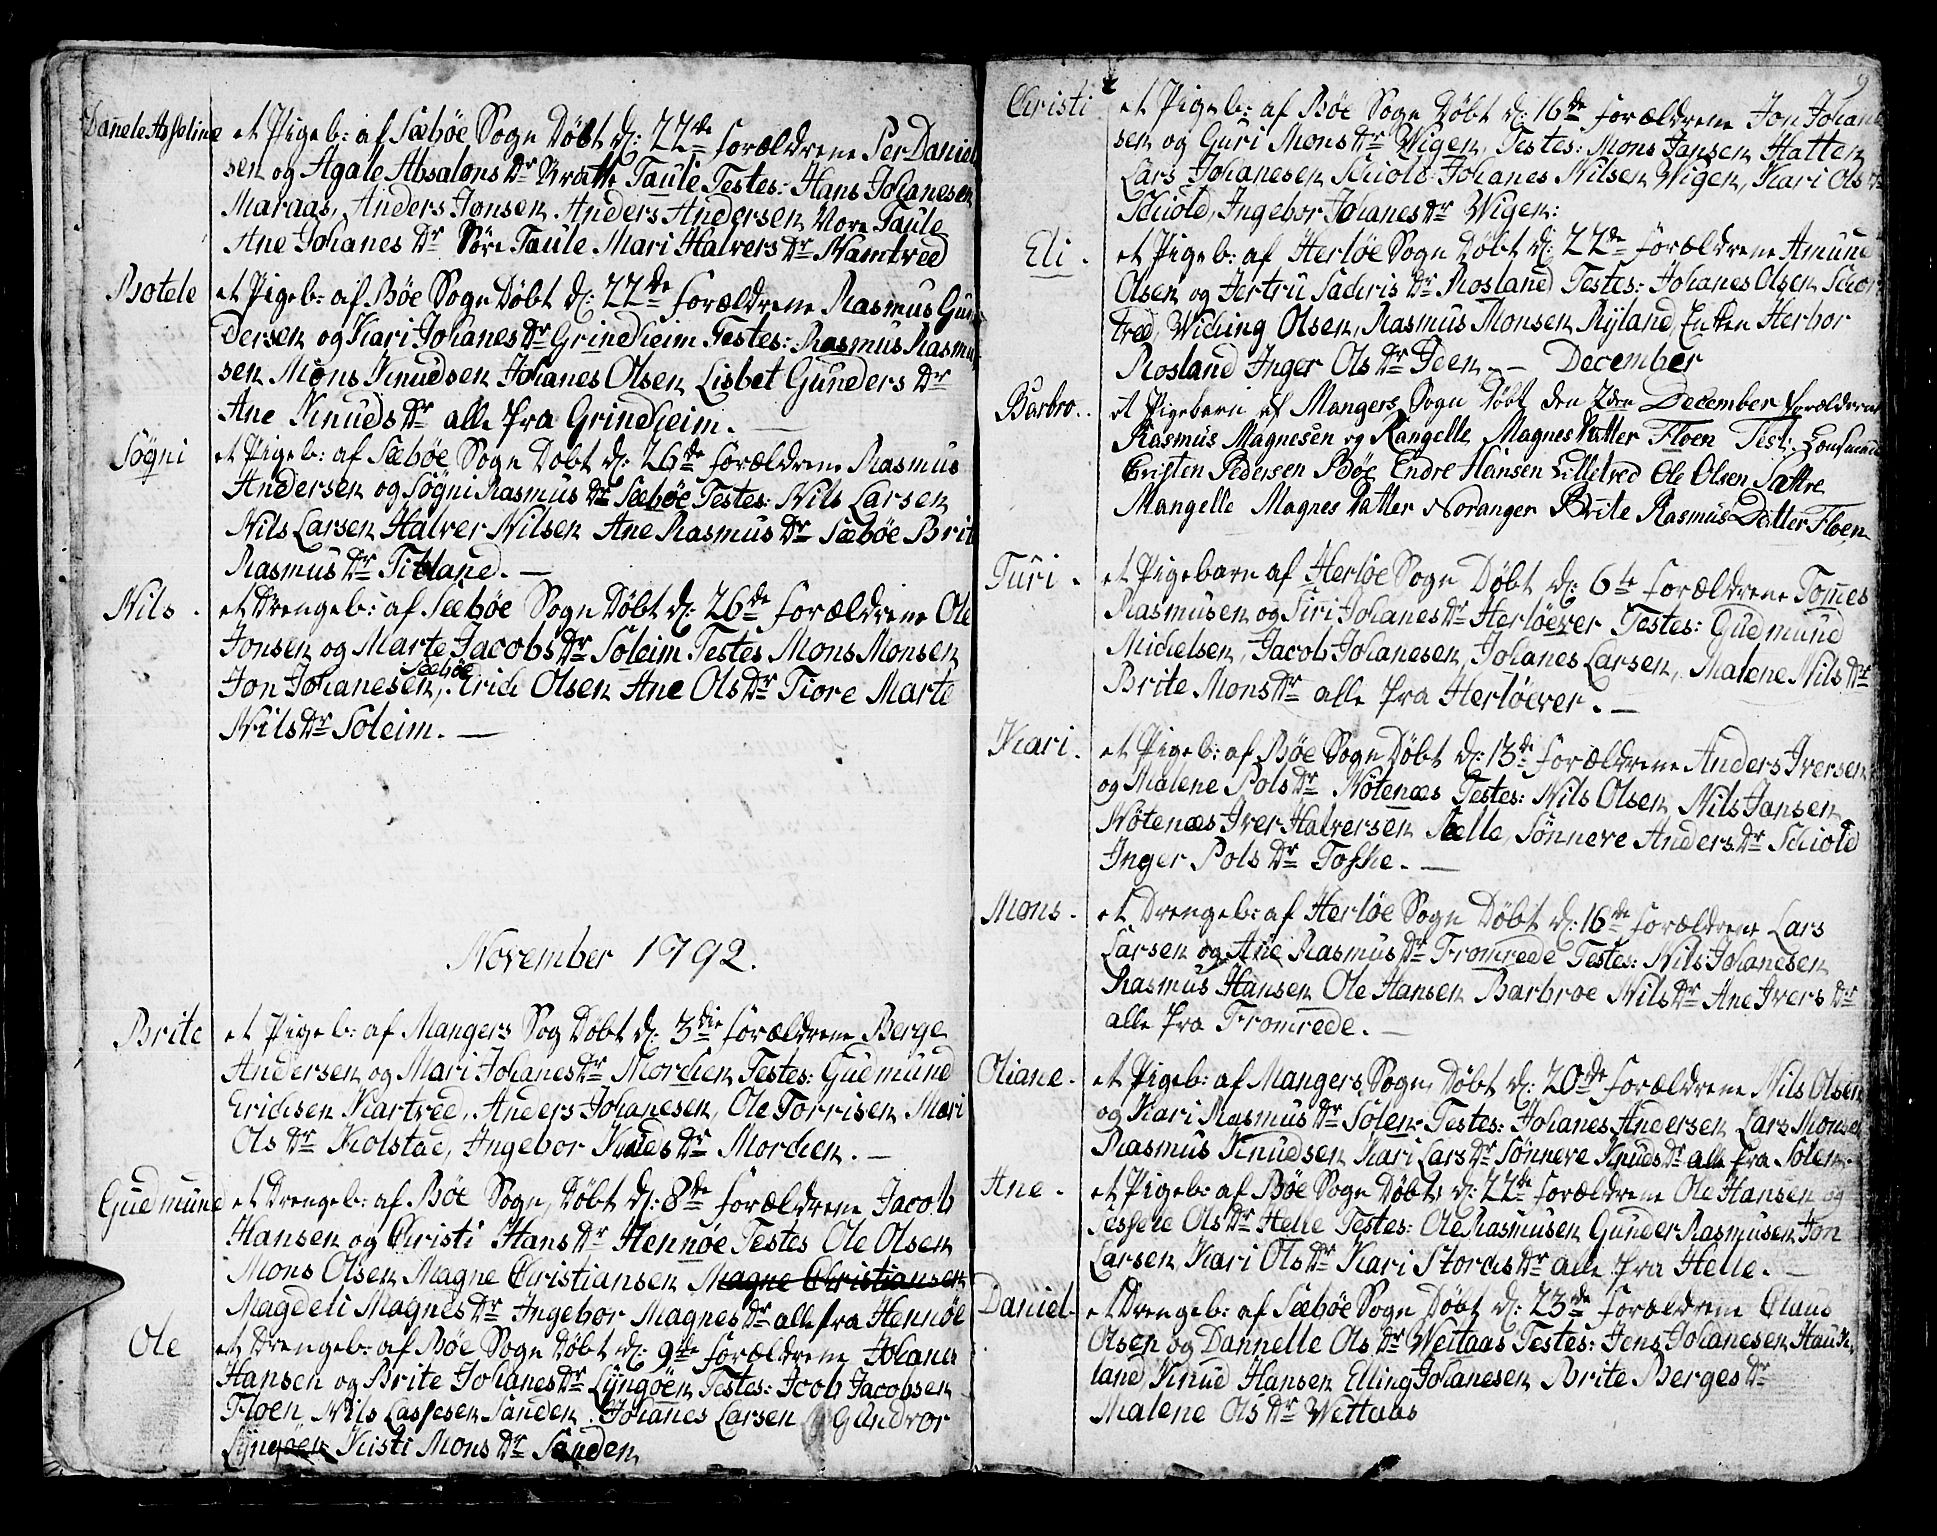 Danele Asseline et Pigeb: af Sæbøe Sogn Døbt d: 22de forældrene Per Daniel
sen og Agate Absalons Dr Taule Testes: Hans Johanesen
Maraas, Anders Jonsen, Anders Andersen Nore Taule
Ane Johanes Dr Søre Taule Mari Halvers Dr Namtved
Botele et Pigeb: af Bøe Sogn Døbt d: 22de forældrene Rasmus Gun
dersen og Kari Johanes Dr Grindheim Testes: Rasmus Rasmu
sen Mons Knudsen Johanes Olsen Lisbet Gunders Dr
Ane Knuds Dr alle fra Grindheim.
Sögni et Pigeb: af Sæbøe Sogn Døbt d: 26de forældrene Rasmus
Andersen og Sögni Rasmus Dr Sæbøe Testes: Nils Larsen
Nils Larsen Halver Nilsen Ane Rasmus Dr Sæbøe Brit
Rasmus Dr Titland. —
Nils. et Drengeb: af Sæbøe Sogn Døbt d: 26de forældrene Ole
Jonsen og Marte Jacobs Dr Soleim Testes Mons Monsen
Jon Johanesen, Sæbøe Erich Olsen Ane Ols Dr Fiore Marte
Nils Dr Soleim. —
November 1792.
Brite et Pigeb: af Mangers Sog Døbt d: 3die forældrene Berge
Andersen og Mari Johanes Dr Mordien Testes: Gudmund
Erichsen Kartved, Anders Johanesen, Ole Torrisen Mari
Ols Dr Kolstad, Ingebor Dr Mordien. —
Gudmund et Drengeb: af Bøe Sogn, Døbt d: 8de forældrene Jacob
Hansen og Christi Hans Dr Hennøe Testes Ole Olsen
Mons Olsen Magne Christiansen Magne Christiansen
Magdeli Magnes Dr Ingebor Magnes Dr alle fra Hennøe
Ole et Drengeb: af Bøe Sogn Døbt d: 9de forældrene Johanes
Hansen og Brite Johanes Dr Lyngøen Testes: Jcob Jacobsen
Floen, Nils Lassesen Sanden, Johanes Larsen Gundvor
Lyngøen Kisti Mons Dr Sanden
9
Christi et Pigeb: af Bøe Sogn Døbt d: 16de forældrene Jon Johane
sen og Guri Mons Dr Wigen, Testes: Mons Jansen Hatten
Lars Johanesen Schiold Johanes Nilsen Wigen, Kari Ols Dr
Schiold, Ingebor Johanes Dr Wigen:
Eli. et Pigeb: af Herløe Sogn Døbt d: 22de forældrene Amund
Olsen og Jertru Sachris Dr Rosland Testes: Johanes Olsen Schor
tved, Wiching Olsen, Rasmus Monsen Ryland, Enken Herbor
Rosland Inger Ols Dr Iden. — December
Barbro. et Pigebarn af Mangers Sogn Døbt den 2den December forælderne
Rasmus Magnesen og Rangelle Magnes Datter Floen Test:
Cristen Pedersen Bøe Endre Hansen Lilletved Ole Olsen Sættre
Mangelle Magnes Datter Noranger Brite Rasmus Datter Floen
Turi. et Pigebarn af Herløe Sogn Døbt d: 6te forældrene Tomes
Rasmusen og Siri Johanes Dr Herløever Testes: Gudmund
Michelsen, Jacob Johanesen, Johanes Larsen, Malene Nils Dr
Brite Mons Dr alle fra Herløever. —
Kari. et Pigeb: af Bøe Sogn Døbt d: 13de forældrene Anders Iversen
og Malene Pols Dr Nötenæs Testes: Nils Olsen, Nils Jansen
Nötenæs Iver Halversen Sælle, Sönneve Anders Dr Schiold
Inger Pols Dr Toske. —
Mons. et Drengeb: af Herløe Sogn Døbt d: 16de forældrene Lars
Larsen og Ane Rasmus Dr Fromrede Testes: Nils Johanesen
Rasmus Hansen Ole Hansen Barbroe Nils Dr Ane Ivers Dr
alle fra Fromrede. —
Oliane. et Pigeb: af Mangers Sogn Døbt d: 20de forældrene Nils Olsen
og Kari Rasmus Dr Solen Testes: Johanes Andersen Lars Monsen
Rasmus Knudsen Kari Lars Dr Sönneve Knuds Dr alle fra Solen.
Ane. et Pigeb: af Bøe Sogn Døbt d: 22de forældrene Ole Hansen og
Ols Dr Helle Testes: Ole Rasmusen Gunder Rasmusen Jon
Larsen Kari Ols Dr Kari Storchs Dr alle fra Helle. —
Daniel. et Drengeb: af Sæbøe Sogn Døbt d: 23de forældrene Claus
Olsen og Dannelle Ols Dr Wettaas Testes: Jens Johanesen Hauk
land, Knud Hansen Elling Johanesen Brite Berges Dr
Malene Ols Dr Wettaas